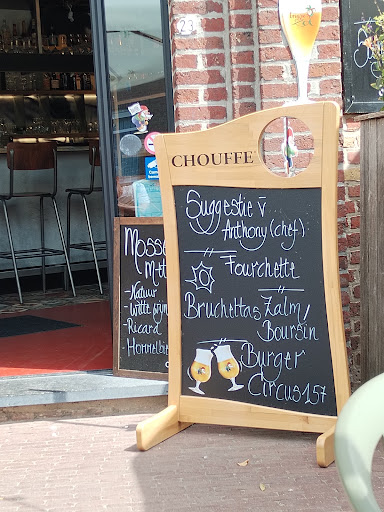 23
CHOUFFE
Suggestie v̄
Anthony (chef):
Fourchette
Bruchettas Zalm/
Boursin
Burger
Circus 157
Mosse
Met
- Natuur
- Witte wijn
- Ricard
- Hommelbi